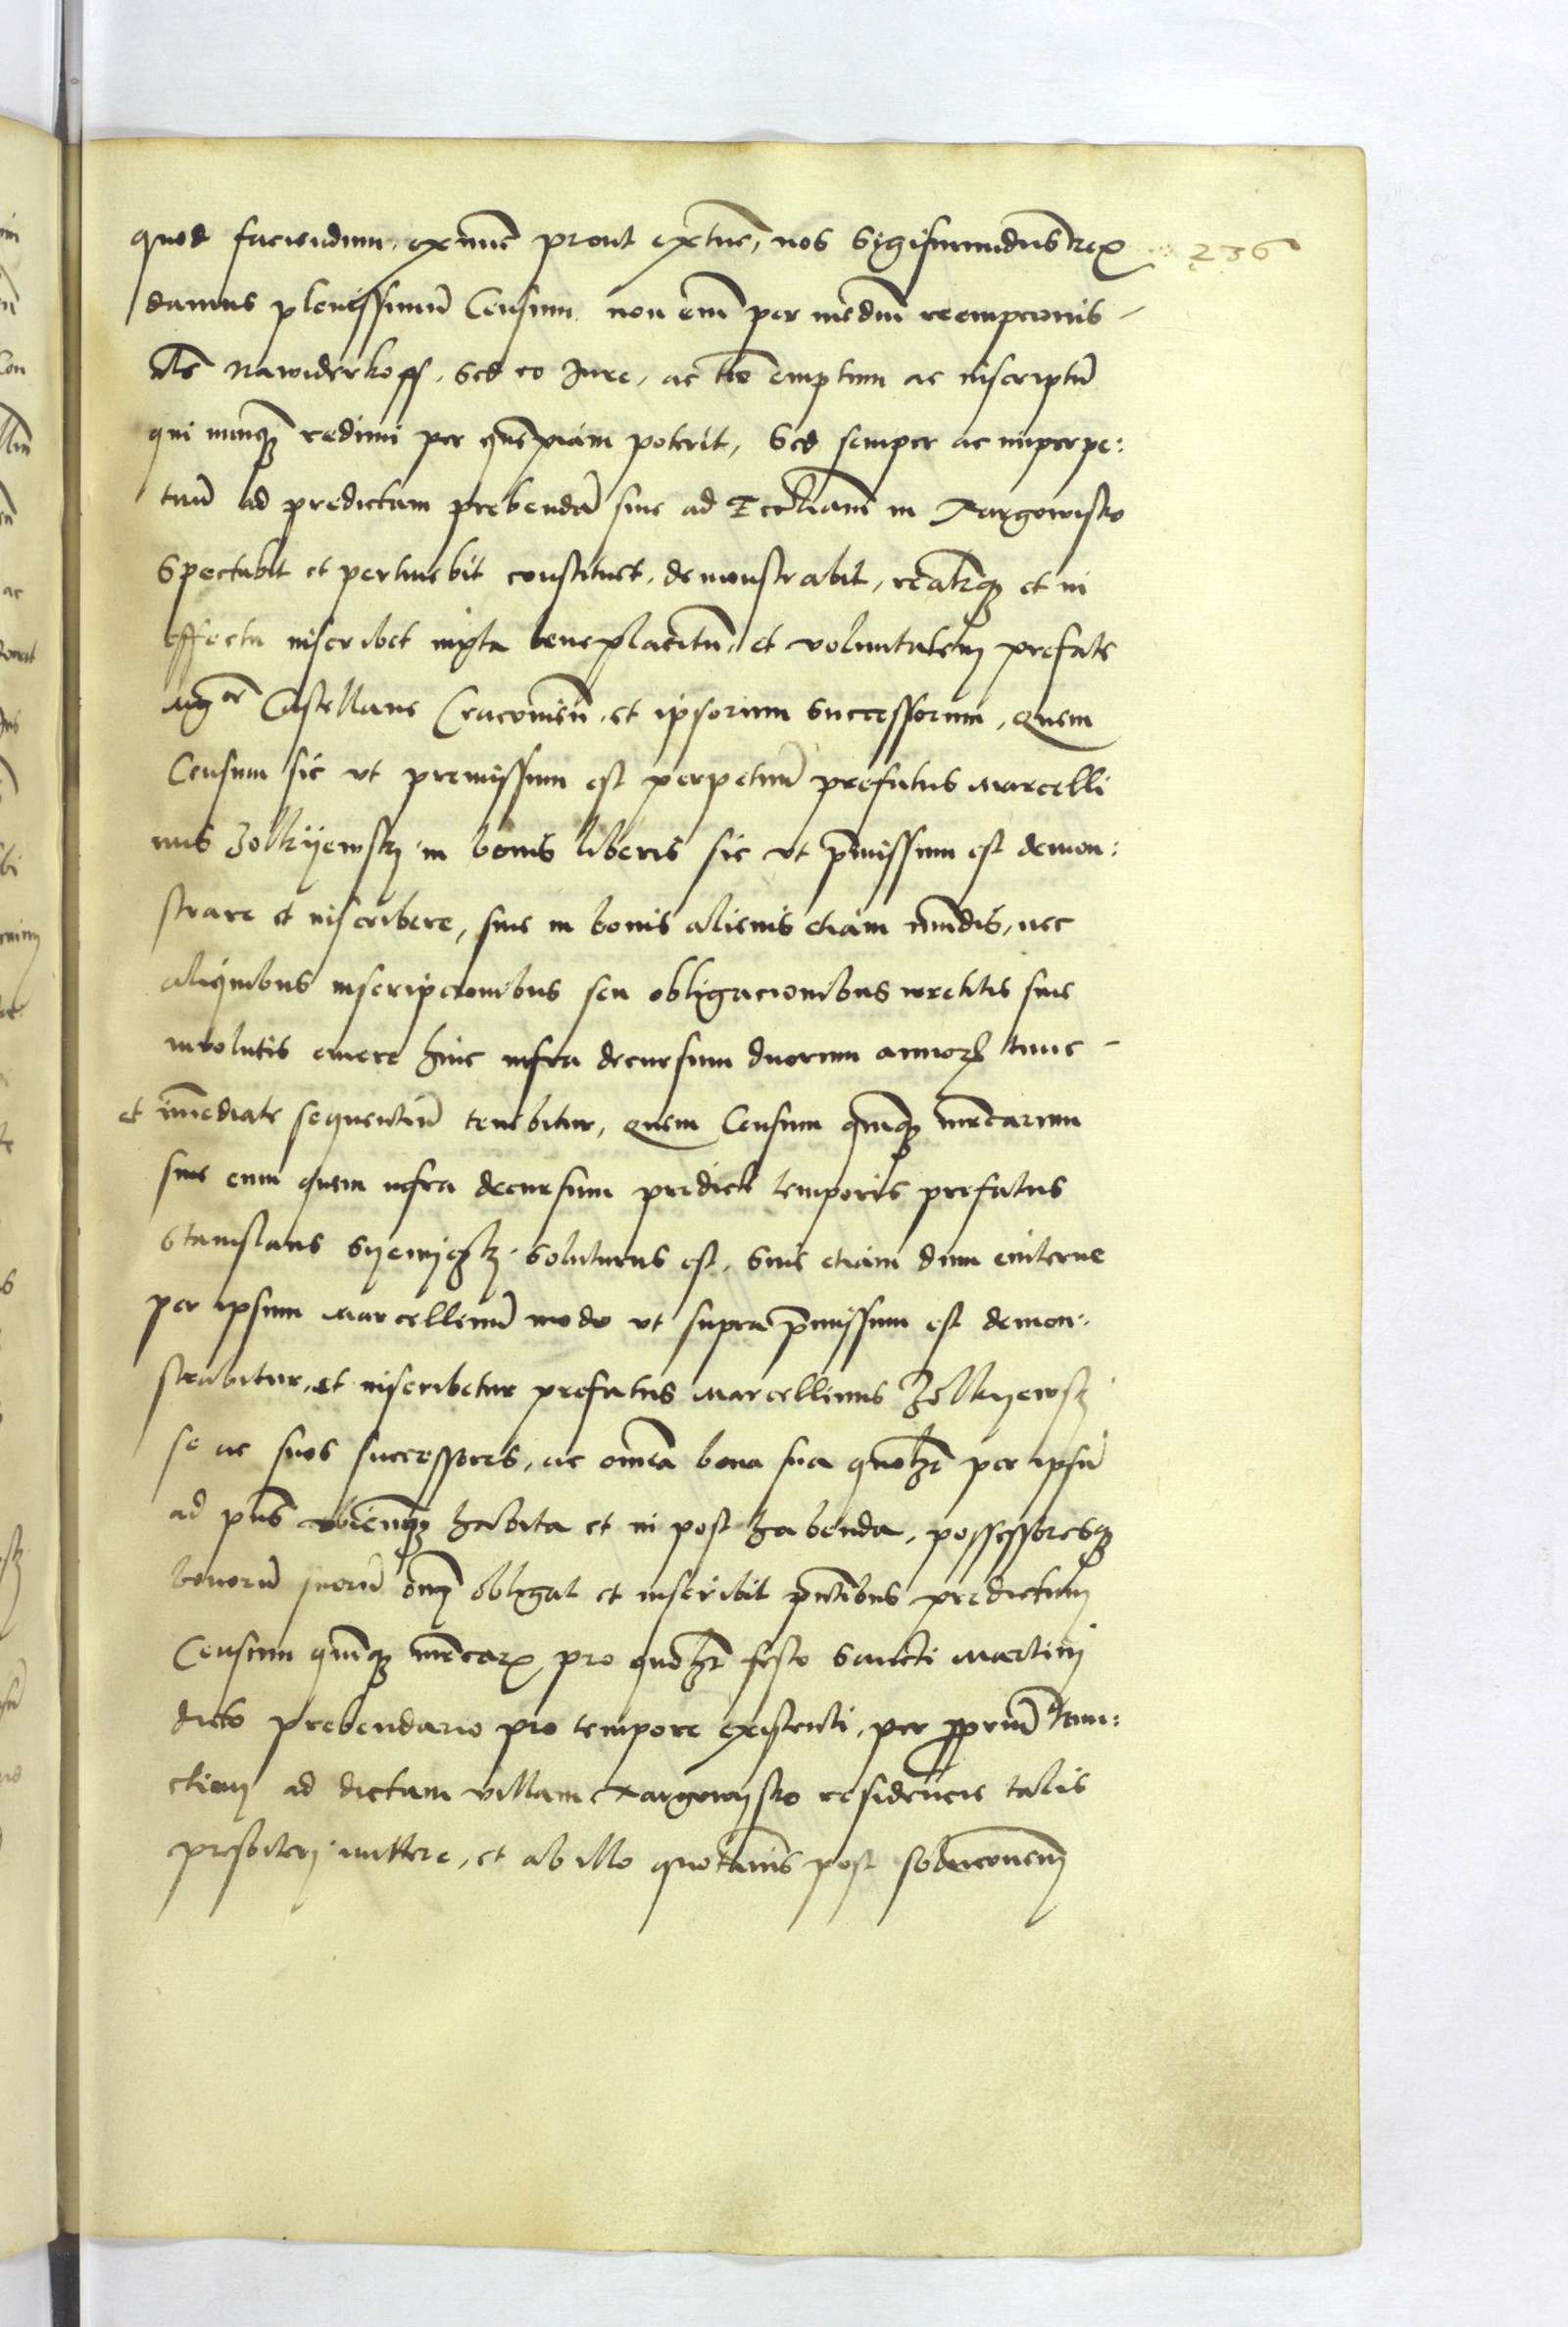 quod faciendum, exnunc prout extunc, nos Sigismundus Rex 236
damus plenissimum Censum non em̃ per mediũ reempcionis
als̃ nawiderkoff, sed eo Jure, ac tĩo emptum ac inscriptũ
qui nunq̃ redimi per quempiam poterit, sed semper ac inperpe:
tuũ ad predictam prebendã siue ad Ecclesiam in Targowisko
Spectabit et pertinebit constituet, demonstrabit, realiterq̃ et in
effectu inscribet iuxta beneplacitũ, et voluntatem prefate
mgce Castellane Cracouieñ, et ipsorum successorum, Quem
Censum sic vt premissum est perpetuũ prefatus Marcelli
nus Zolkijewskj in bonis liberis sic vt p̃missum est demon:
strare et inscribere, siue in bonis alienis etiam mũdis, nec
aliquibus inscripcionibus seu obligacionibus irretitis siue
inuolutis emere hinc infra decursum duorum annorꝝ tunc
et ĩmediate sequentiũ tenebitur, Quem Censum quinq̃ mr̃carum
siue cum quem infra decursum predicti temporis prefatus
Stanislaus soluturus est, siue etiam dum eniterue
per ipsum Marcellinũ modo vt supra p̃missum est demon:
strabitur, et inscribetur prefatus Marcellinus Zolkijewskj
se ac suos successores, ac om̃ia bona sua quelibet per ipsũ
ad pñs vbicunq̃ habita et in post habenda, possessoresq̃
bonorũ suorũ om̃j obligat et inscribit pñtibus predictum
Censum quinq̃ mr̃carꝝ pro quolibet festo Sancti Martinj
dicto prebendario pro tempore existenti, per propriũ
ad dictam villam Targowjsko residencie talis
presbiterj mittere, et ab illo quotannis post solucionem